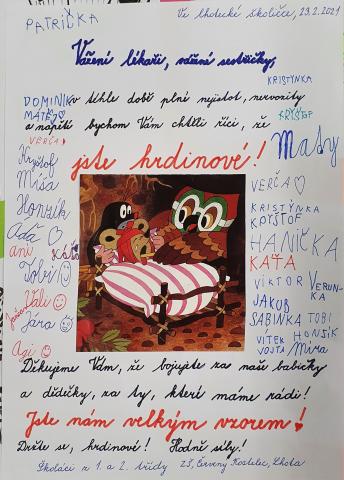 PATRIČKA
Ve Lhotecké školičce, 23.2.2021
Vážení lékaři, vážené sestřičky,
KRISTÝNKA
DOMINIK
v téhle době plné nejistot, nervozity
MATĚJ
KRYŠTOF
a napětí bychom Vám chtěli říci, že
VERČA
Maty
jste hrdinové!
Kryštof
Míša
Honzík
Ada
ani
Tobi
Vali
Jára
Agi
VERČA
KRISTÝNKA
KRYŠTOF
HANIČKA
KAŤA
VIKTOR
VERUN-
KA
JAKUB
SABINKA
TOBI
HONSÍK
VITEK
VOJTA
Míra
Děkujeme Vám, že bojujete za naše babičky
a dědečky, za ty, které máme rádi!
Jste nám velkým vzorem!
Držte se, hrdinové! Hodně síly!
Školáci z 1. a 2. třídy ZŠ, Červený Kostelec, Lhota